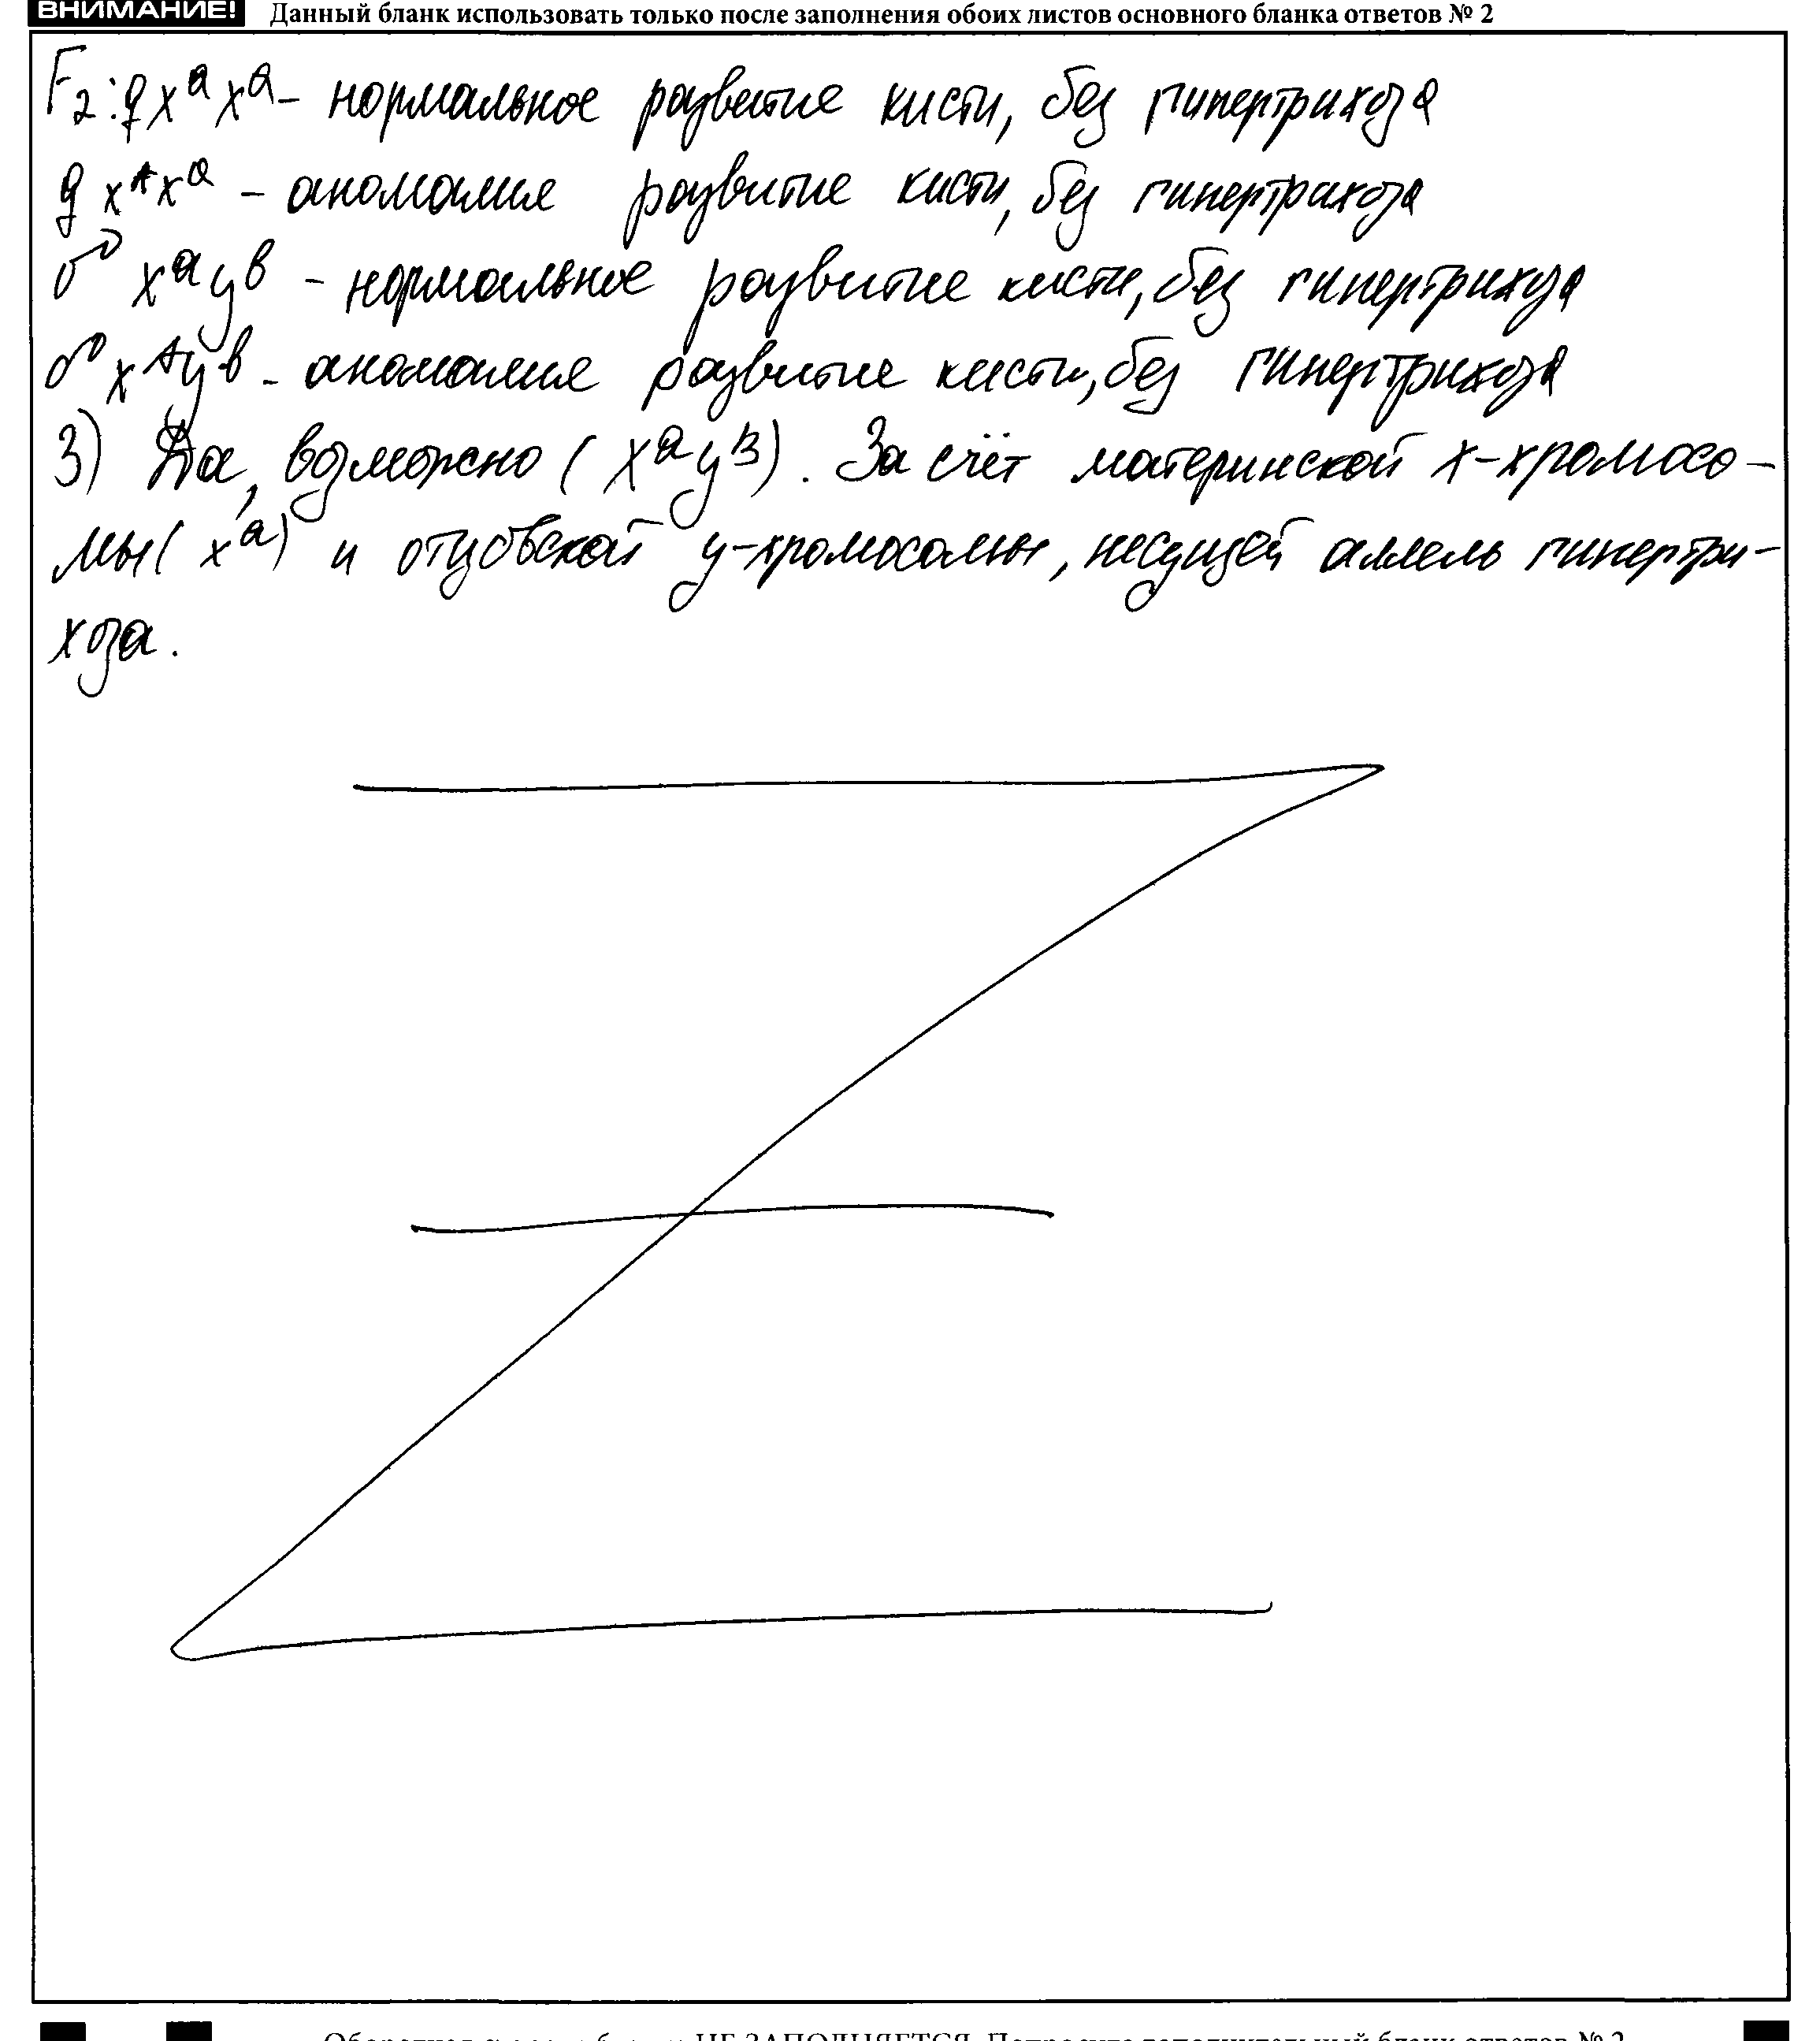 ВНИМАНИЕ! Данный бланк использовать только после заполнения обоих листов основного бланка ответов № 2
F₂: ♀ xᵃxᵃ – нормальное развитие кисти, без гипертрихоза
♀ xᴬxᵃ – аномалие развитие кисти, без гипертрихоза
♂ xᵃyᵇ – нормальное развитие кисти, без гипертрихоза
♂ xᴬyᵇ – аномалие развитие кисти, без гипертрихоза
3) Да, возможно (xᵃyᴮ). За счёт материнской х-хромосо-
мы (xᵃ) и отцовской у-хромосомы, несущей аллель гипертри-
хоза.
НЕ ЗАПОЛНЯЕТСЯ. Попросите дополнительный бланк ответов № 2